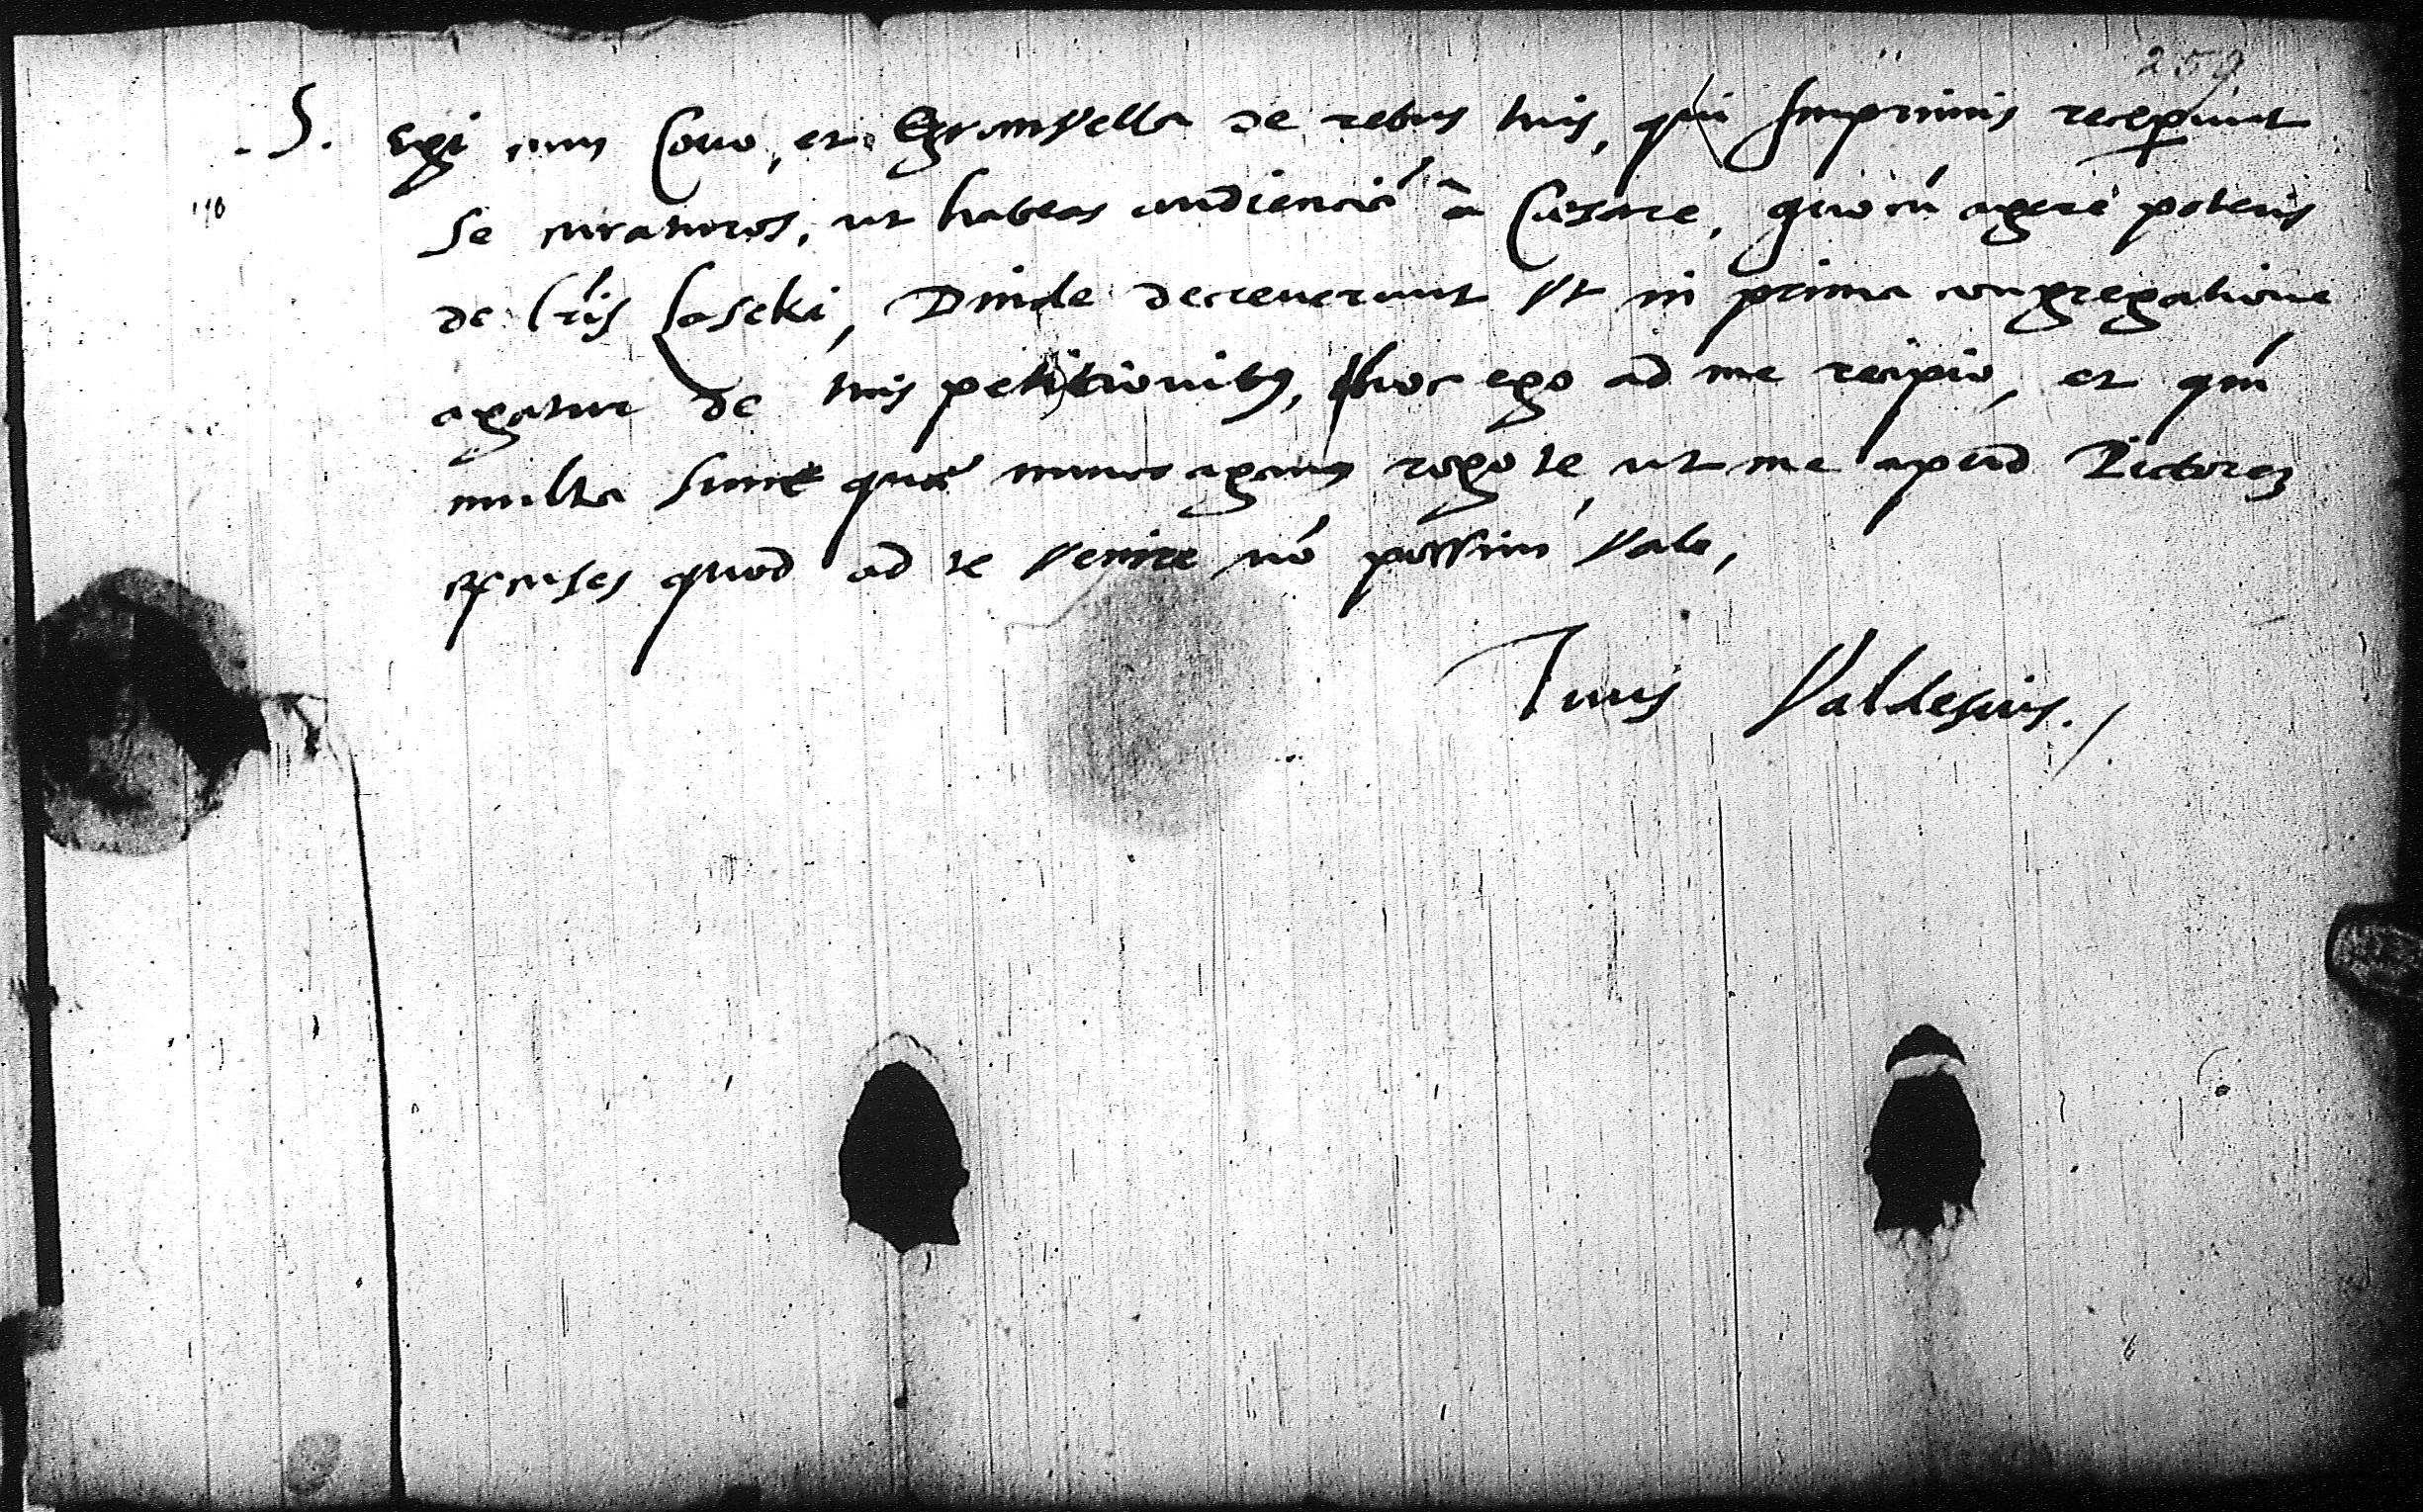 259
.S. Egi cum Couo, et Granvella de rebus tuis, qui Imprimis receperunt
110
se curaturos, ut habeas audienciã à Cesare, quocũ agere poteris
de lr̃is Laseki, Deinde decreuerunt Vt in prima congregatione
agatur de tuis petitionibus, hoc ego ad me recipio, et qm̃
multa sunt quae nunc agamus rogo te, ut me apud Rectorem
excuses quod ad te Venire nõ possim Vale,
Tuus Valdesius./